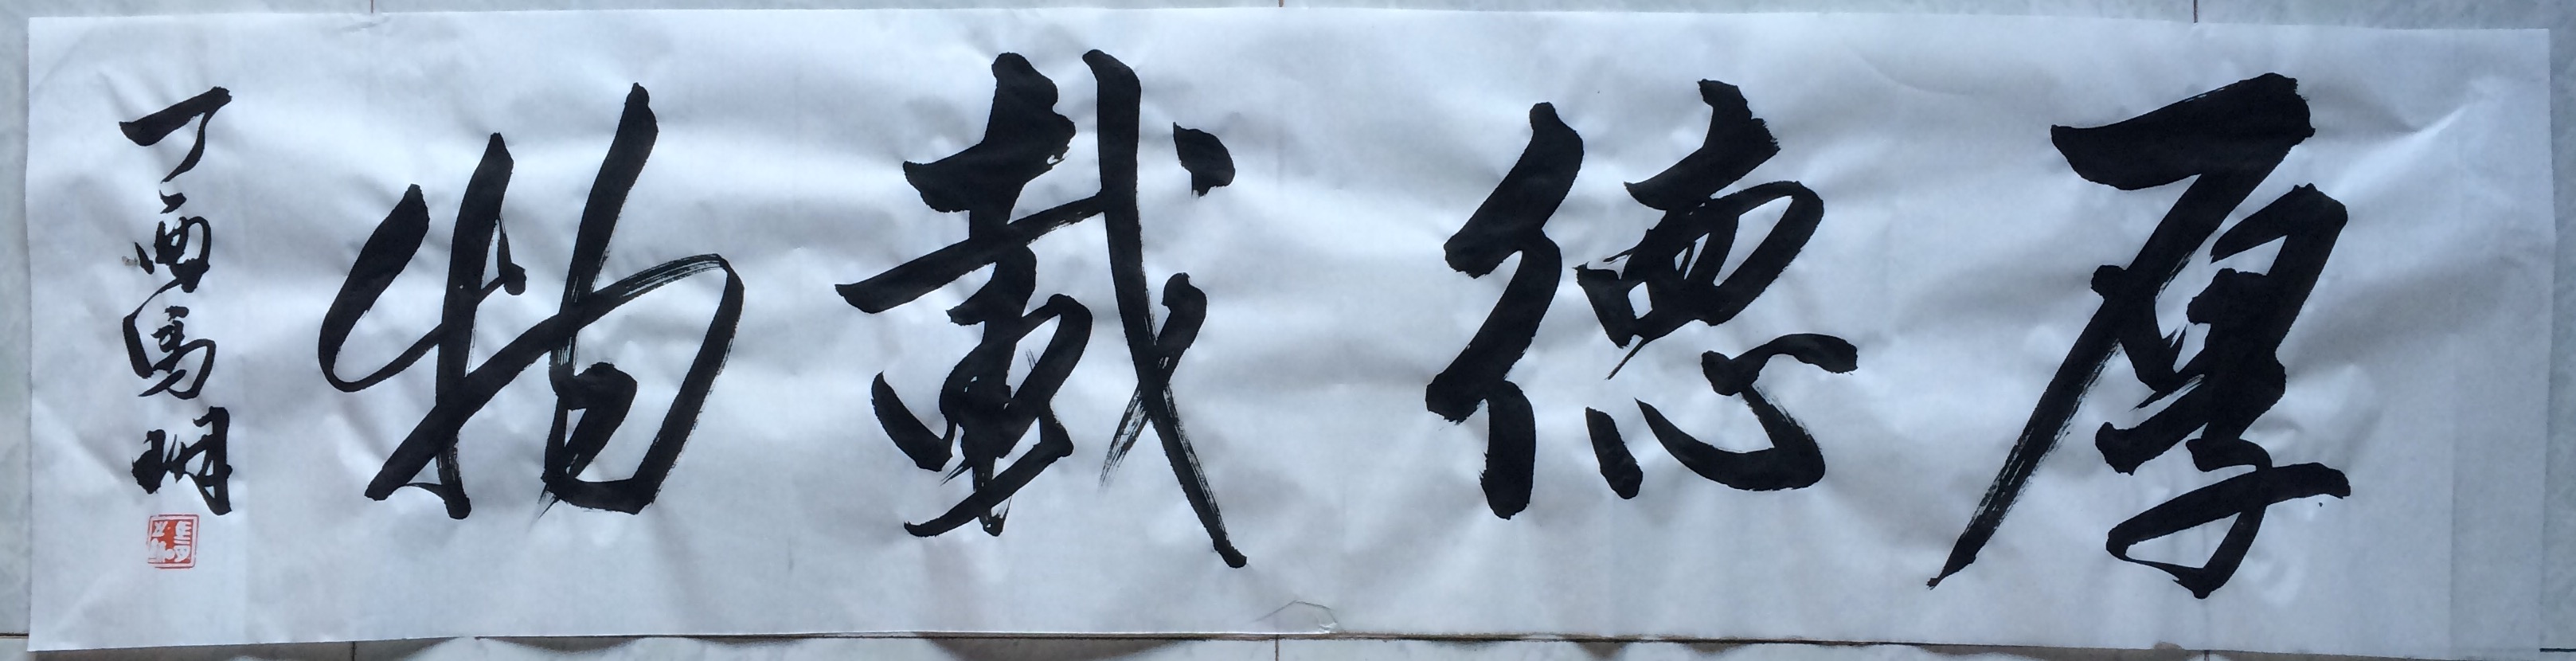 厚德載物
丁酉馬明